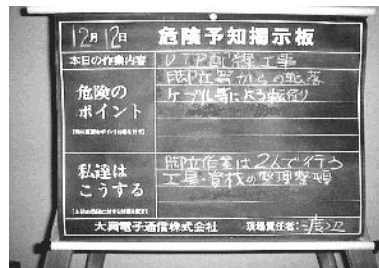 12月12日 危険予知掲示板
本日の作業内容 UTP配線工事
危険のポイント
脚立等からの転落
ケーブル等による転倒
私達はこうする
脚立作業は2人で行う
工具・資材の整理整頓
大興電子通信株式会社 現場責任者:渡辺